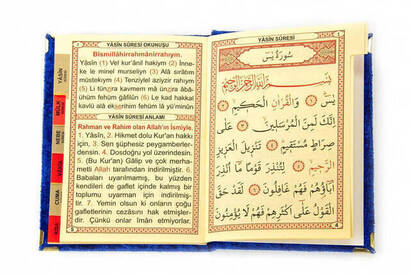 YÂSİN SÛRESİ OKUNUŞU
Bismillâhirrahmânirrahıym.
Yâsîn (1) Vel kur'ânil hakiym (2) İnne-
ke le minel murseliyn (3) Alâ sırâtım
müstekıym (4) Tenziylel aziyzir rahıym
(5) Li tünzira kavmem mâ ünzira âbâ-
ühüm fehüm ğâfilûn (6) Le kad hakkal
kavlü alâ ekserihim fehüm lâ yü'minûn
YÂSÎN SÛRESİ ANLAMI
Rahman ve Rahim olan Allah'ın İsmiyle.
1. Yâsîn, 2. Hikmet dolu Kur'an hakkı
için, 3. Sen şüphesiz peygamberler-
densin. 4. Dosdoğru yol üzerindesin.
5. (Bu Kur'an) Gâlip ve çok merha-
metli Allah tarafından indirilmiştir. 6.
Babaları uyarılmamış, bu yüzden
kendileri de gaflet içinde kalmış bir
toplumu uyarman için indirilmiş-
tir. 7. Yemin olsun ki onların çoğu
gafletlerinin cezasını hak etmişler-
dir. Çünkü onlar İman etmiyorlar.
5
YÂSİN
MÜLK
NEBE
CUMA
YÂSİN SÛRESİ
سُورَةُ يٰسٓ
بِسْمِ اللّٰهِ الرَّحْمٰنِ الرَّحِيمِ
يٰسٓ ﴿١﴾ وَالْقُرْاٰنِ الْحَكِيمِ ﴿٢﴾
اِنَّكَ لَمِنَ الْمُرْسَلِينَ ﴿٣﴾ عَلٰى
صِرَاطٍ مُسْتَقِيمٍ ﴿٤﴾ تَنْزِيلَ الْعَزِيزِ
الرَّحِيمِ ﴿٥﴾ لِتُنْذِرَ قَوْمًا مَٓا اُنْذِرَ
اٰبَٓاؤُهُمْ فَهُمْ غَافِلُونَ ﴿٦﴾ لَقَدْ حَقَّ
الْقَوْلُ عَلٰٓى اَكْثَرِهِمْ فَهُمْ لَا يُؤْمِنُونَ
4